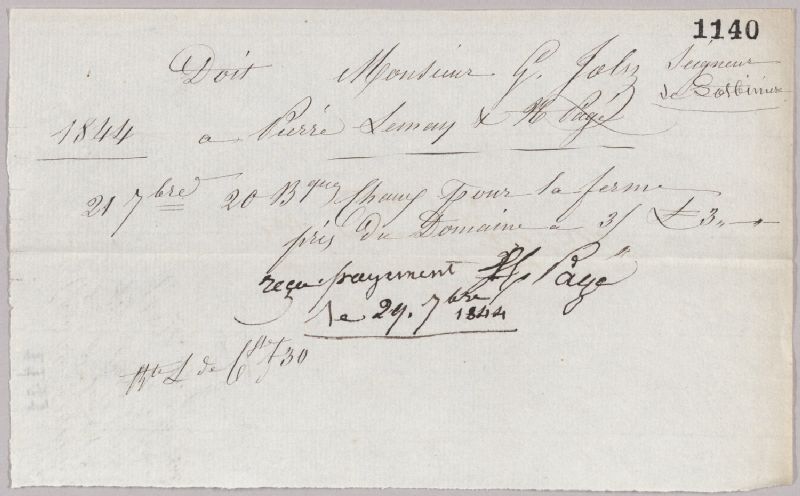 1140
Doit Monsieur G. Joly Seigneur
de Lotbiniere
1844 a Pierre Lemay & H Pagé
21 7bre 20 Bques Chaux pour la ferme
près du Domaine a 3/ £3 „ - „ -
reçu payement H Pagé
le 29. 7bre
1844
de